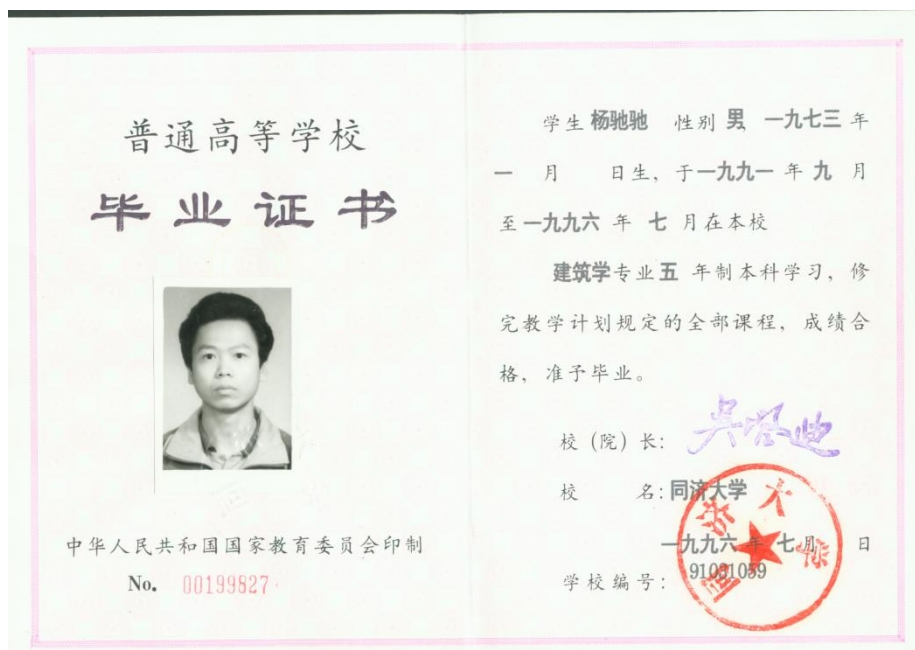 普通高等学校
毕业证书
中华人民共和国国家教育委员会印制
No. 00199827
学生 杨驰驰 性别 男, 一九七三 年
一 月 日生, 于 一九九一 年 九 月
至 一九九六 年 七 月在本校
建筑学专业 五 年制本科学习, 修
完教学计划规定的全部课程, 成绩合
格, 准予毕业。
校 (院) 长: 吴启迪
校 名: 同济大学
一九九六 年 七 月 日
学校编号: 91031059
同济大学